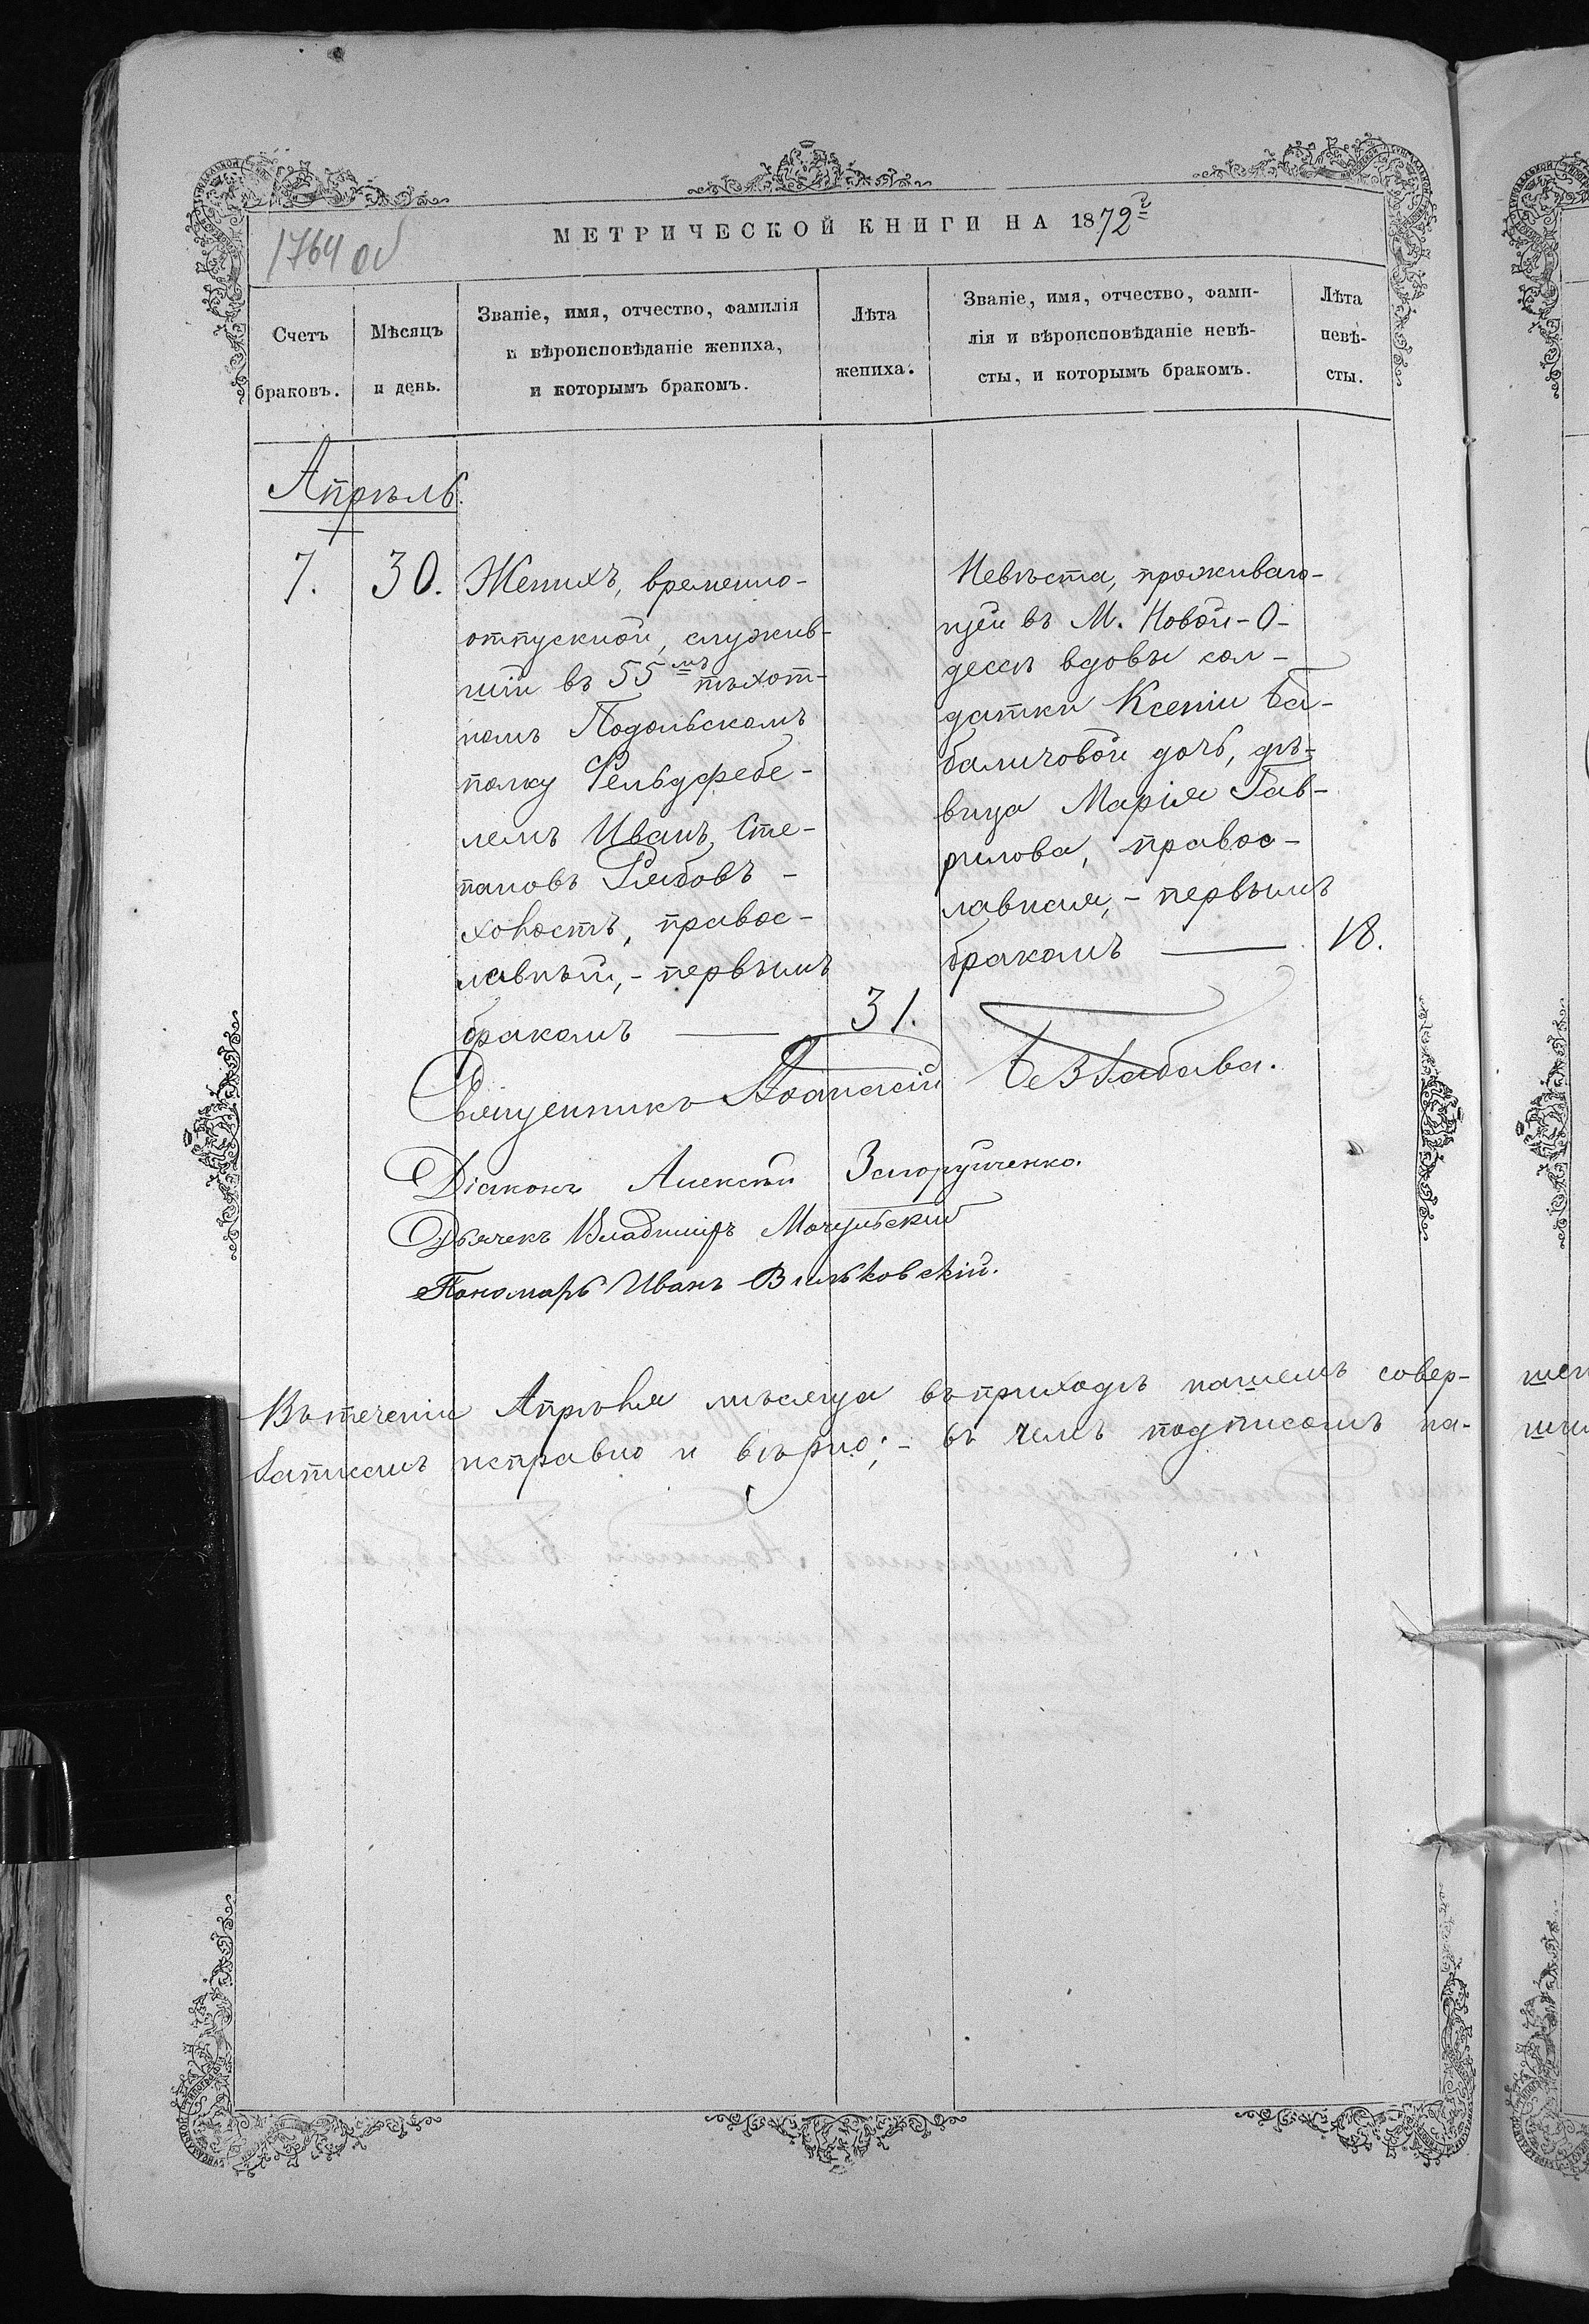 1764 об
МЕТРИЧЕСКОЙ КНИГИ НА 1872 г
Счетъ браковъ.
Мѣсяцъ и день.
Званіе, имя, отчество, фамилія
и вѣроисповѣданіе жениха,
и которымъ бракомъ.
Лѣта
жениха.
Званіе, имя, отчество, фами-
лія и вѣроисповѣданіе невѣ-
сты, и которымъ бракомъ.
Лѣта
невѣ-
сты.
Апрѣль.
7. 30.
Женихъ, временно-
отпускной, служив-
шій въ 55мъ пѣхот-
номъ Подольскомъ
полку Фельдфебе-
лемъ Иванъ Сте-
пановъ Рябовъ -
холостъ, правос-
лавный, - первымъ
бракомъ — 31.
Невѣста, проживаю-
щей въ М. Новой-О-
дессѣ вдовы сол-
датки Ксеніи Ба-
баличовой дочь, дѣ-
вица Марія Гав-
рилова, правос-
лавная, - первымъ
бракомъ — 18.
Священникъ Аѳанасій Безгабава.
Діаконъ Алексѣй
Дьячекъ Владиміръ Мачульский
Пономарь Иванъ Вильковскій.
Въ теченіи Апрѣля мѣсяца въ приходѣ нашемъ совер-
записаны исправно и вѣрно; - въ чемъ подписомъ на-